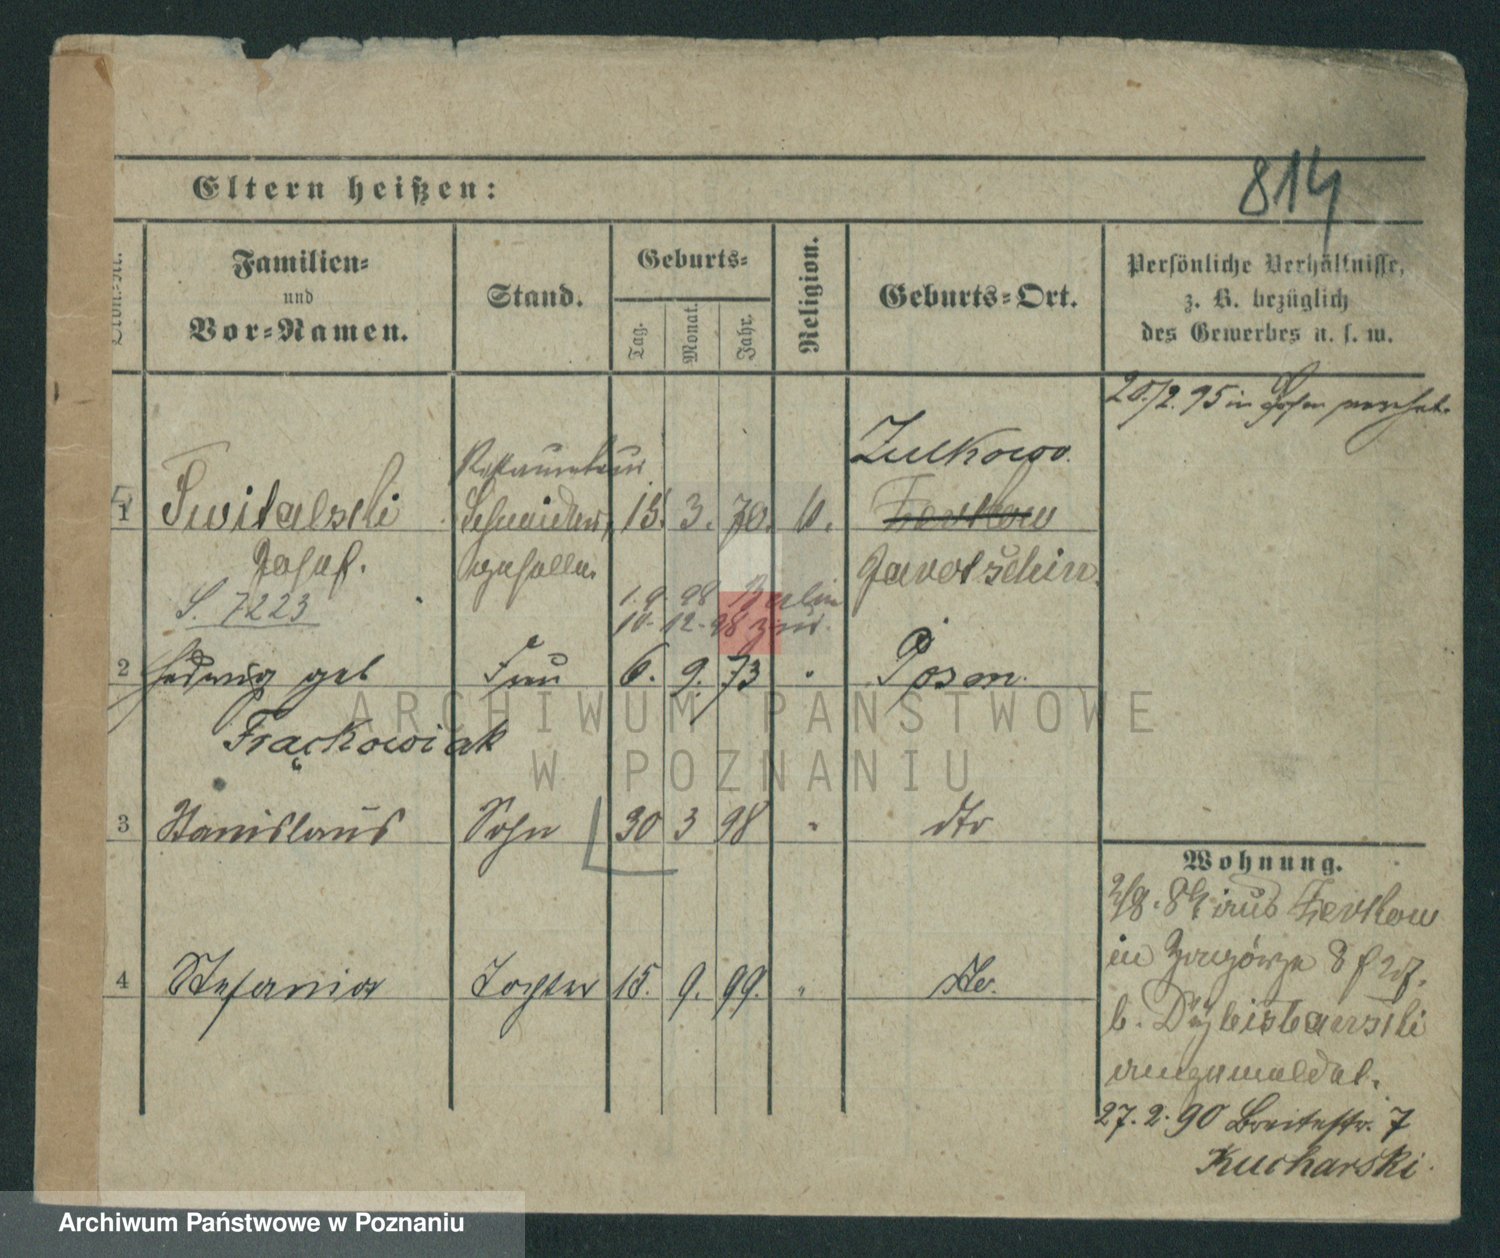 814
Eltern heißen:
Familien=
und
Vor=Namen.
Stand.
Geburts=
Tag.
Monat.
Jahr.
Religion.
Geburts=Ort.
Persönliche Verhältnisse,
z. B. bezüglich
des Gewerbes u. s. w.
20/2. 95 in Posen
Restaurateur
Zulkowo.
1 Switalski Schneider, 15. 3. 70. k.
Josef. geselle. Jarotschin.
S. 7223
1. 9. 98 Berlin
10. 12. 98 zur.
2 Hedwig geb Frau 6. 9. 73 " Posen.
Frąckowiak
3 Stanislaus Sohn 30 3 98 " dto
4 Stefania Tochter 15. 9. 99. " dto.
Wohnung.
aus Zerkow
in Zagórze 8
b.
angemeldet.
27. 2. 90 Breitestr. 7
Kucharski.
ARCHIWUM PAŃSTWOWE
W POZNANIU
Archiwum Państwowe w Poznaniu